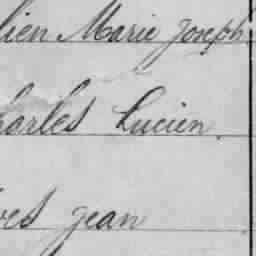 lien Marie Joseph
harles Lucien
ves Jean